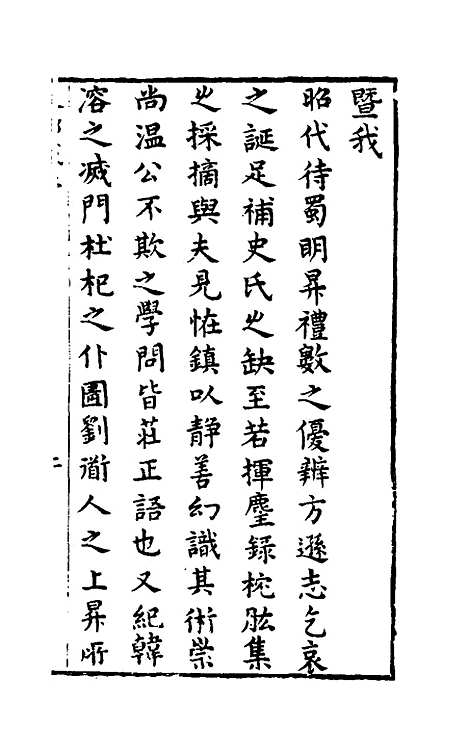 暨我
昭代待蜀明昇禮數之優辯方遜志乞哀
之誕足補史氏之缺至若揮麈錄枕肱集
之採摘與夫見恠鎮以静善幻識其術崇
尚温公不欺之學問皆莊正語也又紀韓
溶之滅門杜杞之仆圖劉衜人之上昇所
二